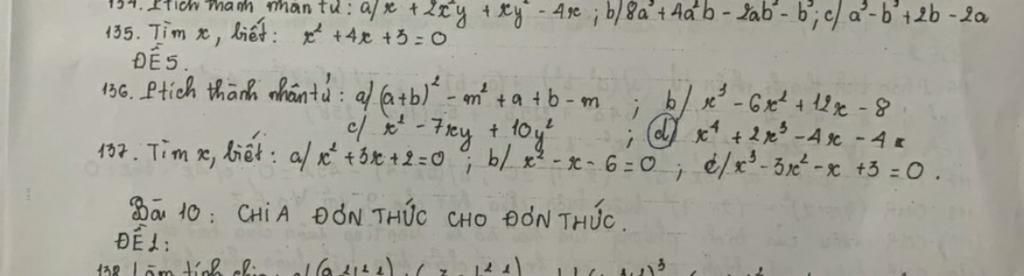 134. Ptích thành nhân tử : a/ x + 2x²y + xy² - 4x ; b/ 8a³ + 4a²b - 2ab² - b³ ; c/ a³ - b³ + 2b - 2a
135. Tìm x, biết : x² + 4x + 3 = 0
ĐỀ 5.
136. Ptích thành nhân tử : a/ (a+b)² - m² + a + b - m ; b/ x³ - 6x² + 12x - 8
c/ x² - 7xy + 10y² ; d/ x⁴ + 2x³ - 4x - 4
137. Tìm x, biết : a/ x² + 3x + 2 = 0 ; b/ x² - x - 6 = 0 ; c/ x³ - 3x² - x + 3 = 0 .
Bài 10 : CHIA ĐƠN THỨC CHO ĐƠN THỨC.
ĐỀ 1 :
138. Làm tính chia